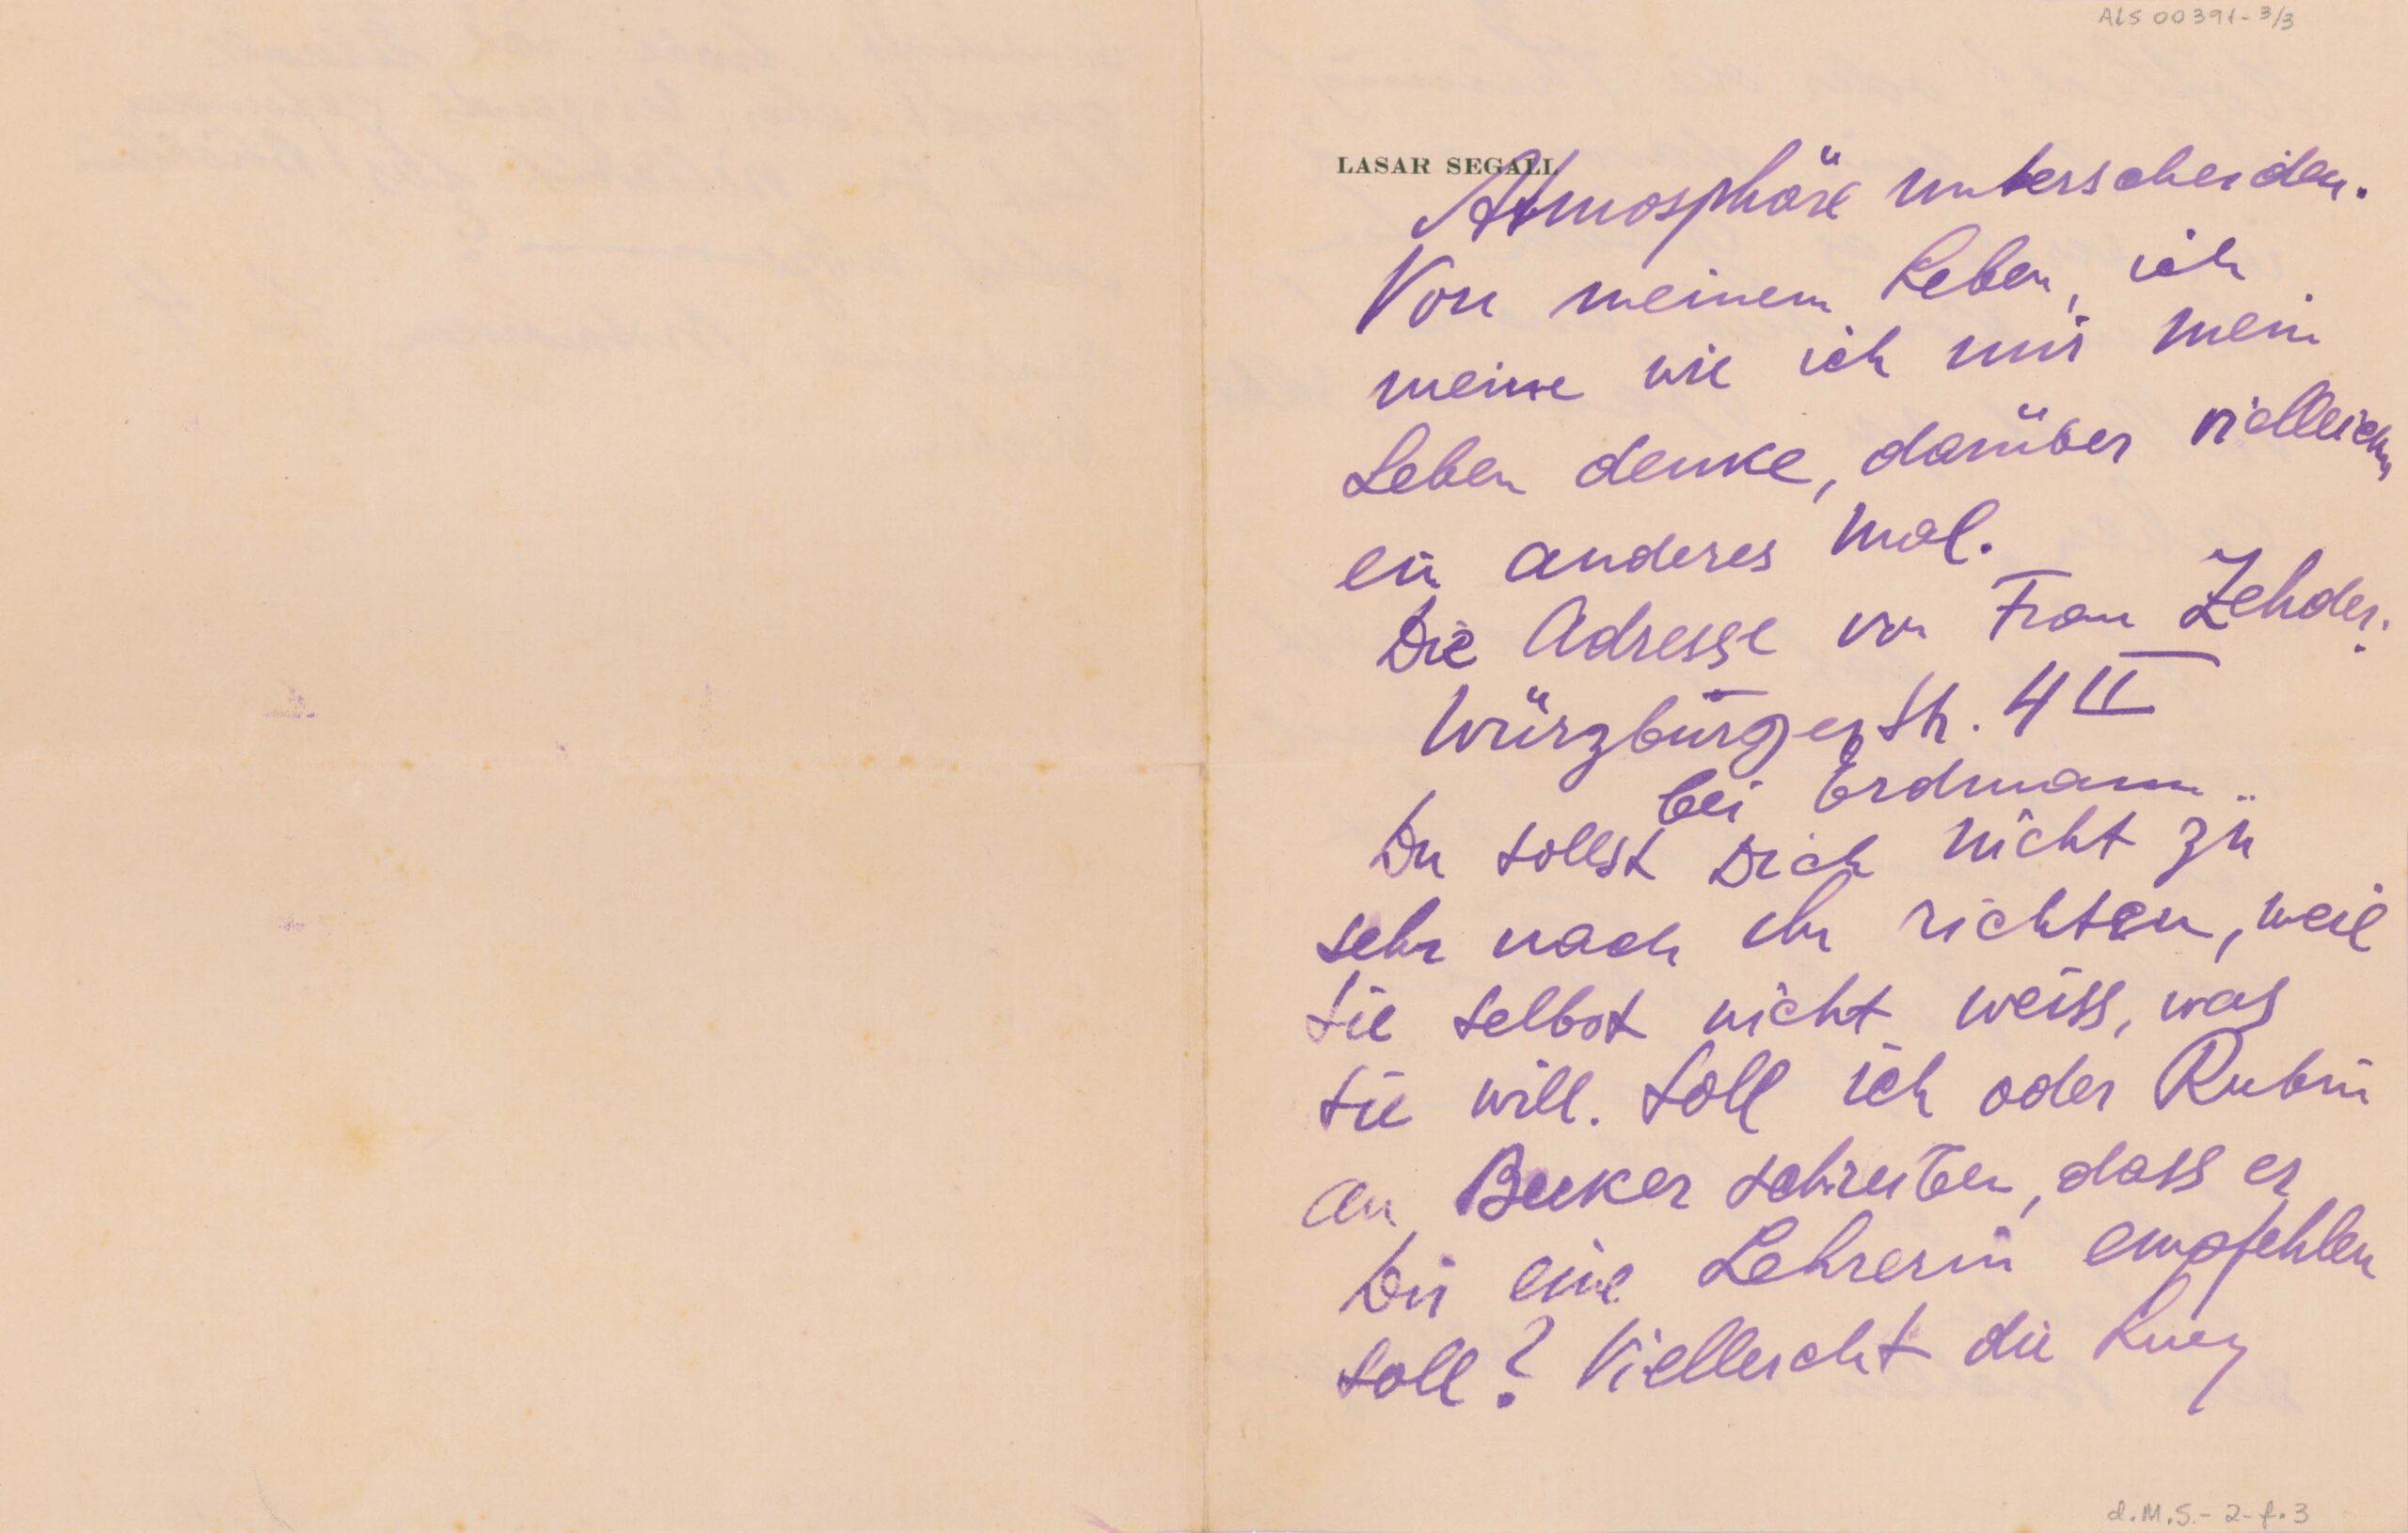 ALS 00391-3/3
LASAR SEGALL
Atmosphäre unterscheiden.
Von meinem Leben, ich
meine wie ich mir mein
Leben denke, darüber vielleicht
ein anderes Mal.
Die Adresse von Frau Zehder:
Würzburgerstr. 4 II
bei Erdmann.
Du sollst Dich nicht zu
sehr nach ihr richten, weil
sie selbst nicht weiss, was
sie will. Soll ich oder Rubin
an schreiben, dass er
Dir eine Lehrerin empfehlen
soll? Vielleicht die
d.M.S.-2-f.3